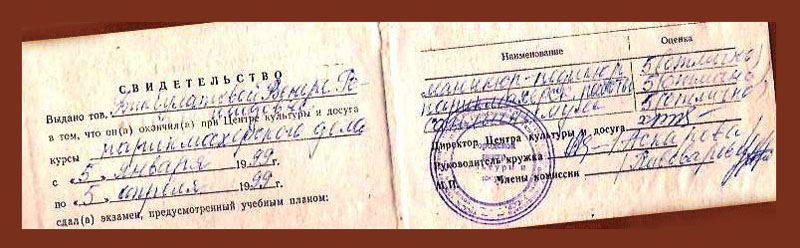 СВИДЕТЕЛЬСТВО
Выдано тов.
в том, что он(а) окончил(а) при Центре культуры и досуга
курсы парикмахерского дела
с „5„ января 1999 г.
по „5„ апреля 1999 г.
сдал(а) экзамен, предусмотренный учебным планом:
Наименование Оценка
маникюр-педикюр 5 (отлично)
парикмахерск. работы 5 (отлично)
5 (отлично)
Директор Центра культуры и досуга
Руководитель кружка Аскарова
М.П. Члены комиссии